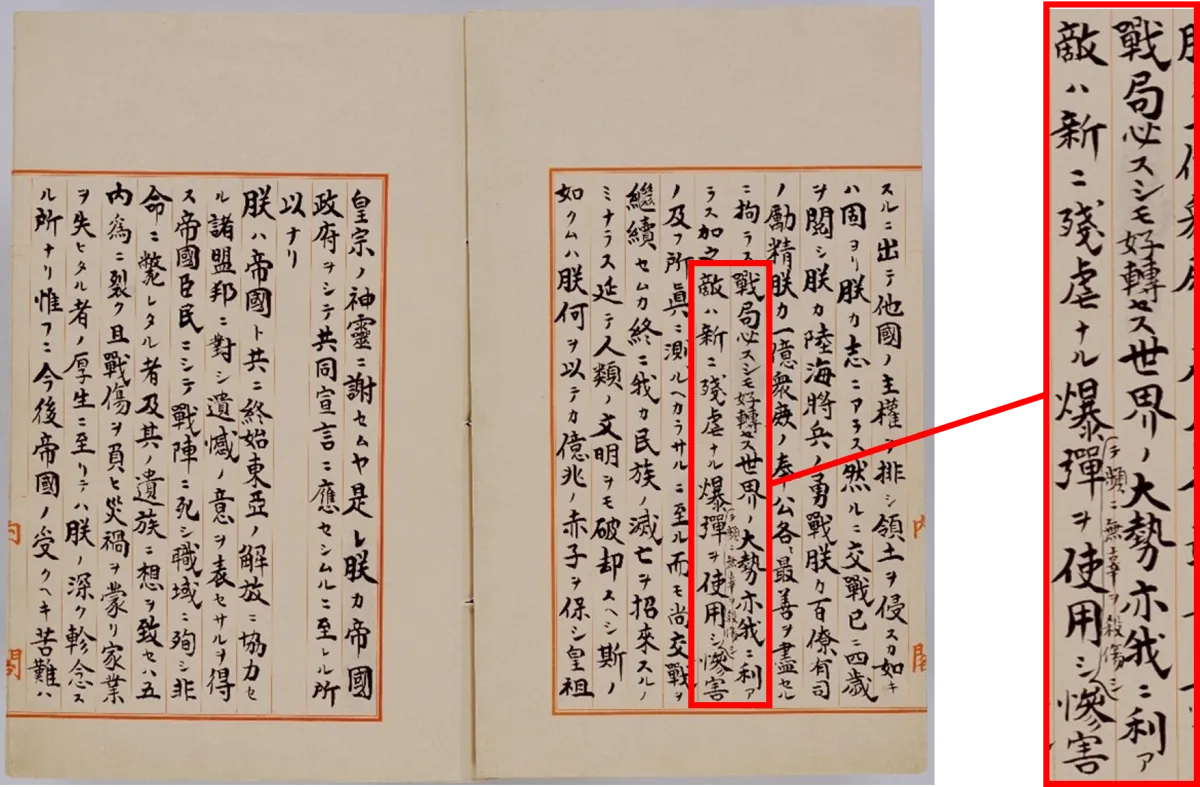 スルニ出テ他國ノ主權ヲ排シ領土ヲ侵スカ如キ
ハ固ヨリ朕カ志ニアラス然ルニ交戰已ニ四歳
ヲ閲シ朕カ陸海將兵ノ勇戰朕カ百僚有司
ノ勵精朕カ一億衆庶ノ奉公各〻最善ヲ盡セル
ニ拘ラス戰局必スシモ好轉セス世界ノ大勢亦我ニ利ア
ラス加之敵ハ新ニ殘虐ナル爆彈ヲ使用シ慘害
テ頻ニ無辜ヲ殺傷シ
ノ及フ所眞ニ測ルヘカラサルニ至ル而モ尚交戰ヲ
繼續セムカ終ニ我カ民族ノ滅亡ヲ招來スルノ
ミナラス延テ人類ノ文明ヲモ破却スヘシ斯ノ
如クムハ朕何ヲ以テカ億兆ノ赤子ヲ保シ皇祖
皇宗ノ神靈ニ謝セムヤ是レ朕カ帝國
政府ヲシテ共同宣言ニ應セシムルニ至レル所
以ナリ
朕ハ帝國ト共ニ終始東亞ノ解放ニ協力セ
ル諸盟邦ニ對シ遺憾ノ意ヲ表セサルヲ得
ス帝國臣民ニシテ戰陣ニ死シ職域ニ殉シ非
命ニ斃レタル者及其ノ遺族ニ想ヲ致セハ五
内爲ニ裂ク且戰傷ヲ負ヒ災禍ヲ蒙リ家業
ヲ失ヒタル者ノ厚生ニ至リテハ朕ノ深ク軫念ス
ル所ナリ惟フニ今後帝國ノ受クヘキ苦難ハ
内閣
戰局必スシモ好轉セス世界ノ大勢亦我ニ利ア
敵ハ新ニ殘虐ナル爆彈ヲ使用シ慘害
テ頻ニ無辜ヲ殺傷シ